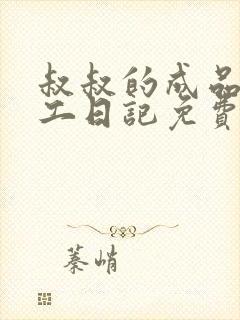 叔叔的成品
工日記免費
蓁峭